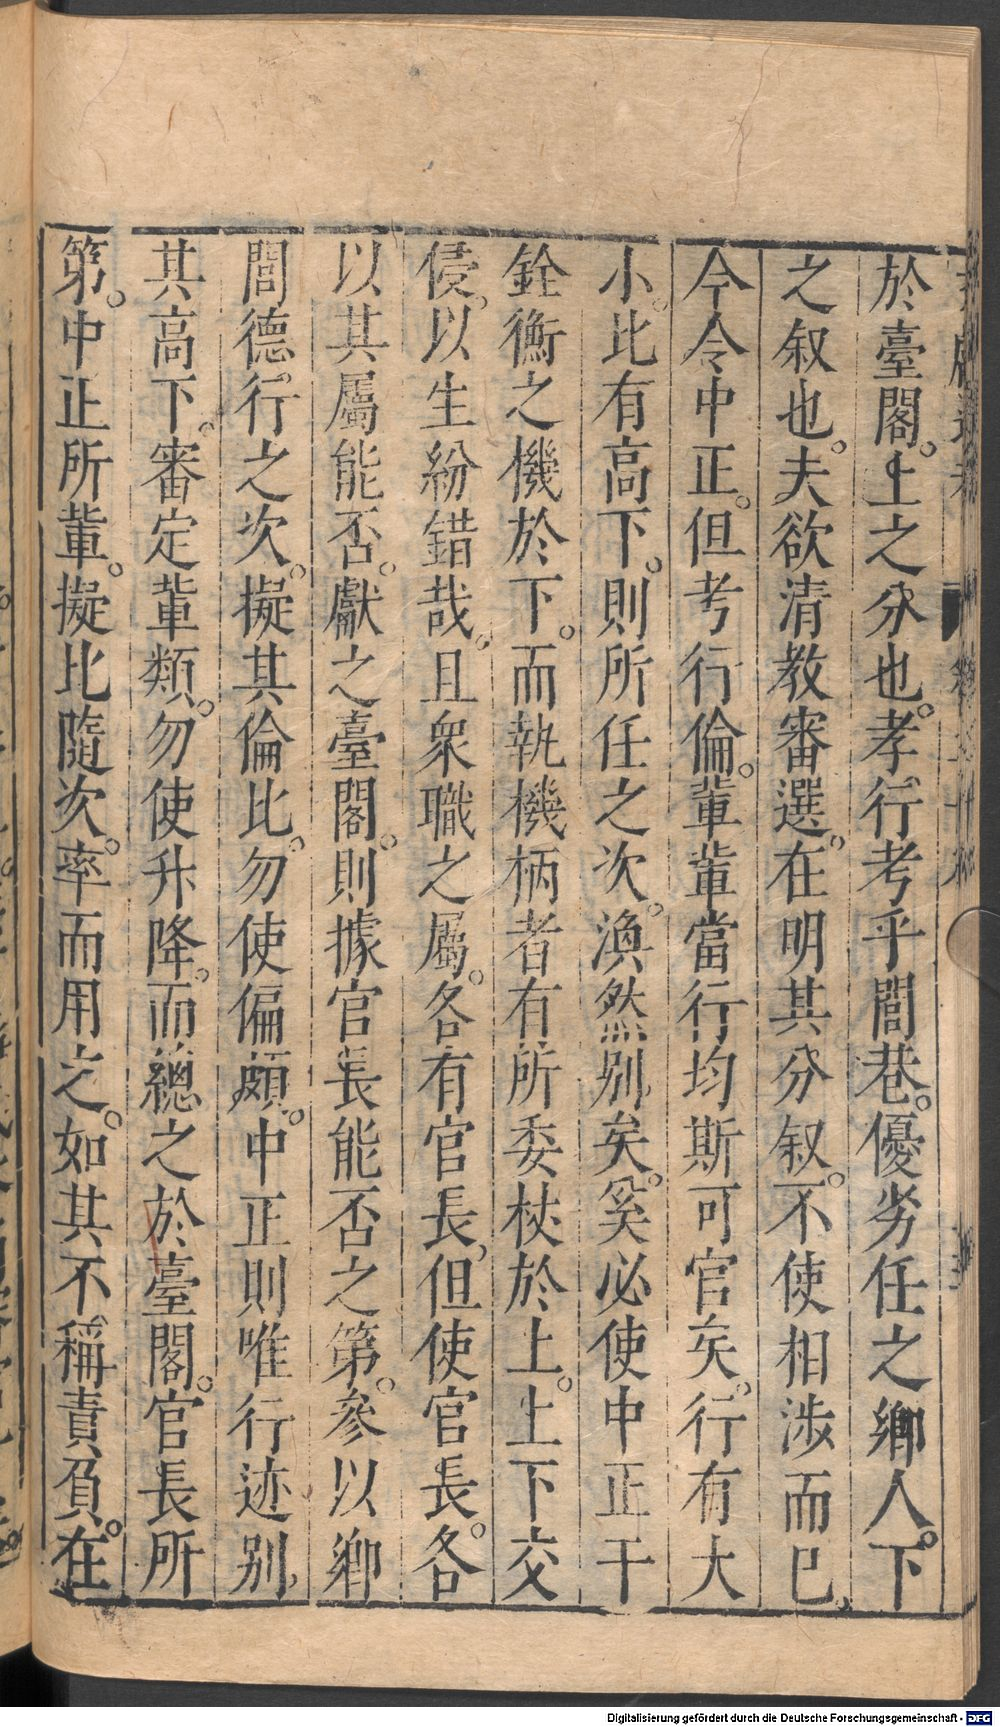 於臺閣。上之分也。孝行考乎閭巷。優劣任之鄉人。下
之叙也。夫欲清教審選。在明其分叙。不使相涉而已。
今令中正。但考行倫。輩輩當行均斯可官矣。行有大
小。比有高下。則所任之次。渙然别矣。奚必使中正干
銓衡之機於下。而執機柄者有所委杖於上。上下交
侵。以生紛錯哉。且衆職之屬。各有官長。但使官長。各
以其屬能否。獻之臺閣。則據官長能否之第。參以鄉
閭德行之次。擬其倫比。勿使偏頗。中正則唯行迹别
其高下。審定輩類。勿使升降。而總之於臺閣。官長所
第。中正所輩。擬比隨次。率而用之。如其不稱責負。在
Digitalisierung gefördert durch die Deutsche Forschungsgemeinschaft - DFG